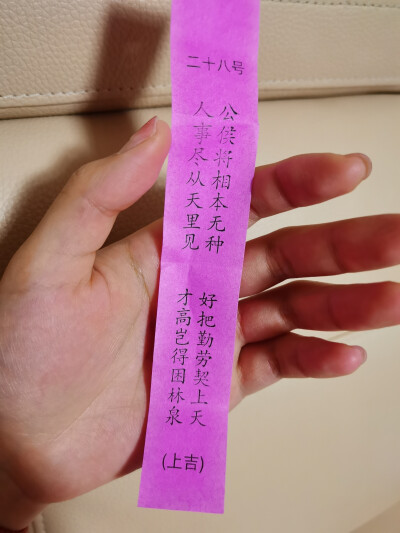 二十八号
公侯将相本无种
好把勤劳契上天
人事尽从天里见
才高岂得困林泉
(上吉)